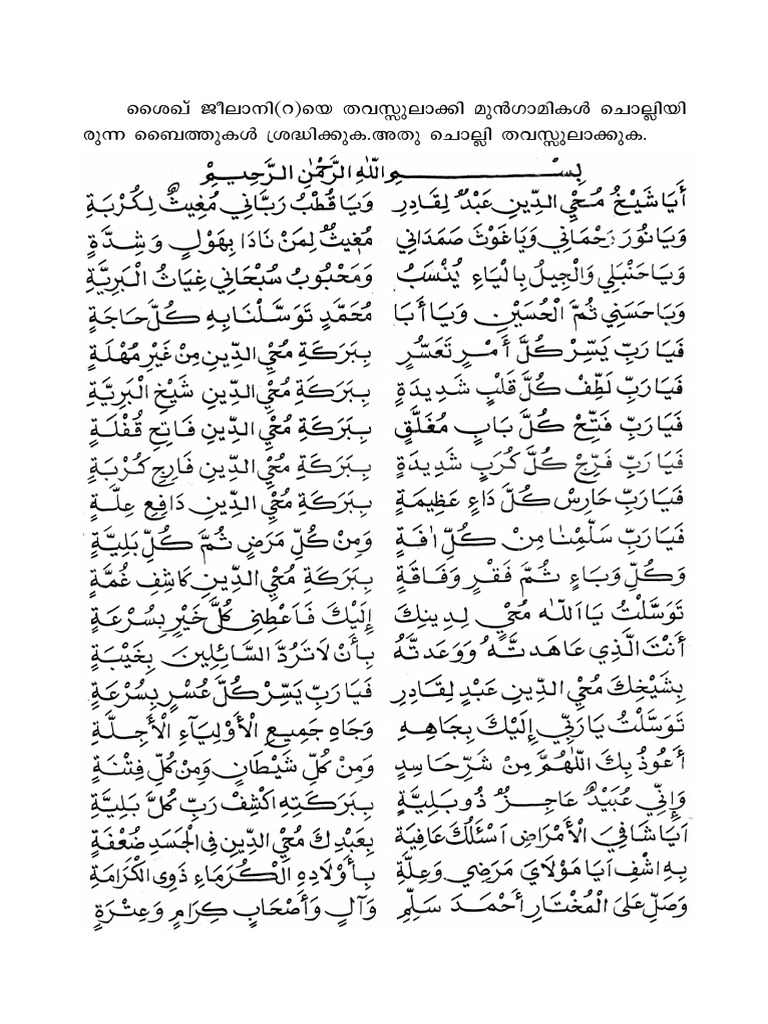 ശൈഖ് ജീലാനി(റ)യെ തവസ്സുലാക്കി മുൻഗാമികൾ ചൊല്ലിയി
രുന്ന ബൈത്തുകൾ ശ്രദ്ധിക്കുക.അതു ചൊല്ലി തവസ്സുലാക്കുക.
بِسْمِ اللهِ الرَّحْمٰنِ الرَّحِيْمِ
أَيَا شَيْخُ مُحْيِ الدِّينِ عَبْدٌ لِقَادِرِ وَيَا قُطْبُ رَبَّانِي مُغِيثٌ لِكُرْبَةِ
وَيَا نُورَ رَحْمَانِي وَيَا غَوْثَ صَمَدَانِي مُغِيثٌ لِمَنْ نَادَا بِهَوْلٍ وَشِدَّةٍ
وَيَا حَنْبَلِي وَالْجِيلُ بِالْيَاءِ يُنْسَبُ وَمَحْبُوبُ سُبْحَانِي غِيَاثُ الْبَرِيَّةِ
وَيَا حَسَنِي ثُمَّ الْحُسَيْنِ وَيَا أَبَا مُحَمَّدٍ تَوَسَّلْنَا بِهِ كُلَّ حَاجَةٍ
فَيَا رَبِّ يَسِّرْ كُلَّ أَمْرٍ تَعَسُّرٍ بِبَرَكَةِ مُحْيِ الدِّينِ مِنْ غَيْرِ مُهْلَةٍ
فَيَا رَبِّ لَطِّفْ كُلَّ قَلْبٍ شَدِيدَةٍ بِبَرَكَةِ مُحْيِ الدِّينِ شَيْخِ الْبَرِيَّةِ
فَيَا رَبِّ فَتِّحْ كُلَّ بَابٍ مُغَلَّقٍ بِبَرَكَةِ مُحْيِ الدِّينِ فَاتِحِ قُفْلَةٍ
فَيَا رَبِّ فَرِّجْ كُلَّ كُرَبٍ شَدِيدَةٍ بِبَرَكَةِ مُحْيِ الدِّينِ فَارِجِ كُرْبَةٍ
فَيَا رَبِّ حَارِسْ كُلَّ دَاءٍ عَظِيمَةٍ بِبَرَكَةِ مُحْيِ الدِّينِ دَافِعِ عِلَّةٍ
فَيَا رَبِّ سَلِّمْنَا مِنْ كُلِّ اٰفَةٍ وَمِنْ كُلِّ مَرَضٍ ثُمَّ كُلِّ بَلِيَّةٍ
وَكُلِّ وَبَاءٍ ثُمَّ فَقْرٍ وَفَاقَةٍ بِبَرَكَةِ مُحْيِ الدِّينِ كَاشِفِ غُمَّةٍ
تَوَسَّلْتُ يَا اَللّٰه مُحْيِ لِدِينِكَ إِلَيْكَ فَاَعْطِنِي كُلَّ خَيْرٍ بِسُرْعَةٍ
أَنْتَ الَّذِي عَاهَدتَّهُ وَوَعَدتَّهُ بِأَنْ لَا تَرُدَّ السَّائِلِينَ بِخَيْبَةٍ
بِشَيْخِكَ مُحْيِ الدِّينِ عَبْدٍ لِقَادِرِ فَيَا رَبِّ يَسِّرْ كُلَّ عُسْرٍ بِسُرْعَةٍ
تَوَسَّلْتُ يَا رَبِّي إِلَيْكَ بِجَاهِهِ وَجَاهِ جَمِيعِ الْأَوْلِيَآءِ الْأَجِلَّةِ
أَعُوذُ بِكَ اللّٰهُمَّ مِنْ شَرِّ حَاسِدٍ وَمِنْ كُلِّ شَيْطَانٍ وَمِنْ كُلِّ فِتْنَةٍ
وَإِنِّي عُبَيْدٌ عَاجِزٌ ذُو بَلِيَّةٍ بِبَرَكَتِهِ اكْشِفْ رَبِّ كُلَّ بَلِيَّةٍ
اَيَا شَافِيَ الْأَمْرَاضِ اَسْئَلُكَ عَافِيَة بِعَبْدِكَ مُحْيِ الدِّينِ فِي الْجَسَدِ ضُعْفَةٍ
بِهِ اشْفِ اَيَا مَوْلَايَ مَرَضِي وَعِلَّةِ بِأَوْلَادِهِ الْكُرَمَاءِ ذَوِي الْكَرَامَةِ
وَصَلِّ عَلَى الْمُخْتَارِ أَحْمَدَ سَلِّمِ وَآلٍ وَأَصْحَابٍ كِرَامٍ وَعِتْرَةٍ